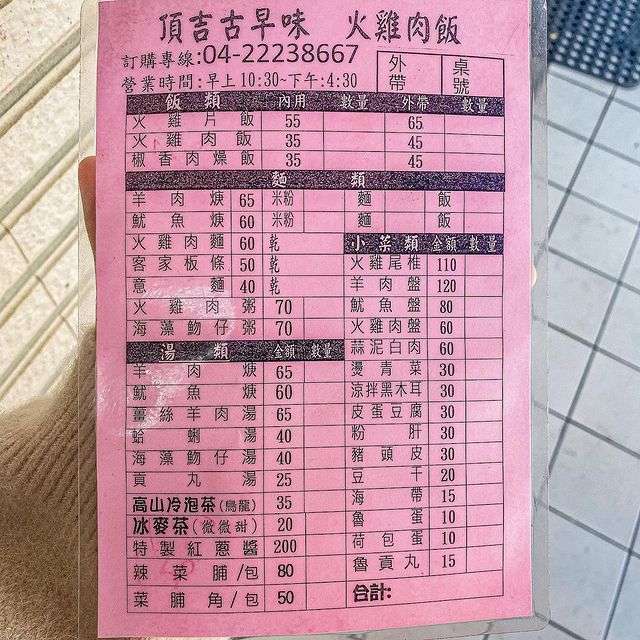 頂吉古早味 火雞肉飯
訂購專線:04-22238667
營業時間:早上10:30~下午:4:30
外帶 桌號
飯類 內用 數量 外帶 數量
火雞片飯 55 65
火雞肉飯 35 45
椒香肉燥飯 35 45
麵類
羊肉焿 65 米粉 麵 飯
魷魚焿 60 米粉 麵 飯
火雞肉麵 60 乾
客家板條 50 乾
意麵 40 乾
火雞肉粥 70
海藻魩仔粥 70
湯類 金額 數量
羊肉焿 65
魷魚焿 60
薑絲羊肉湯 65
蛤蜊湯 40
海藻魩仔湯 40
貢丸湯 25
高山冷泡茶(烏龍) 35
冰麥茶(微微甜) 20
特製紅蔥醬 200
辣菜脯/包 80
菜脯角/包 50
小菜類 金額 數量
火雞尾椎 110
羊肉盤 120
魷魚盤 80
火雞肉盤 60
蒜泥白肉 60
燙青菜 30
涼拌黑木耳 30
皮蛋豆腐 30
粉肝 30
豬頭皮 30
豆干 20
海帶 15
魯蛋 10
荷包蛋 10
魯貢丸 15
合計: